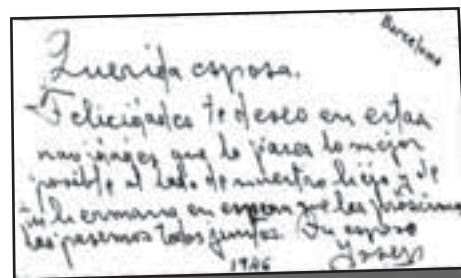 Barcelona
Querida esposa.
Felicidades te deseo en estas
navidades que lo pases lo mejor
posible al lado de nuestro hijo y de
tu hermano en espera que las próximas
las pasemos todos juntos. Tu esposo
Josep
1946